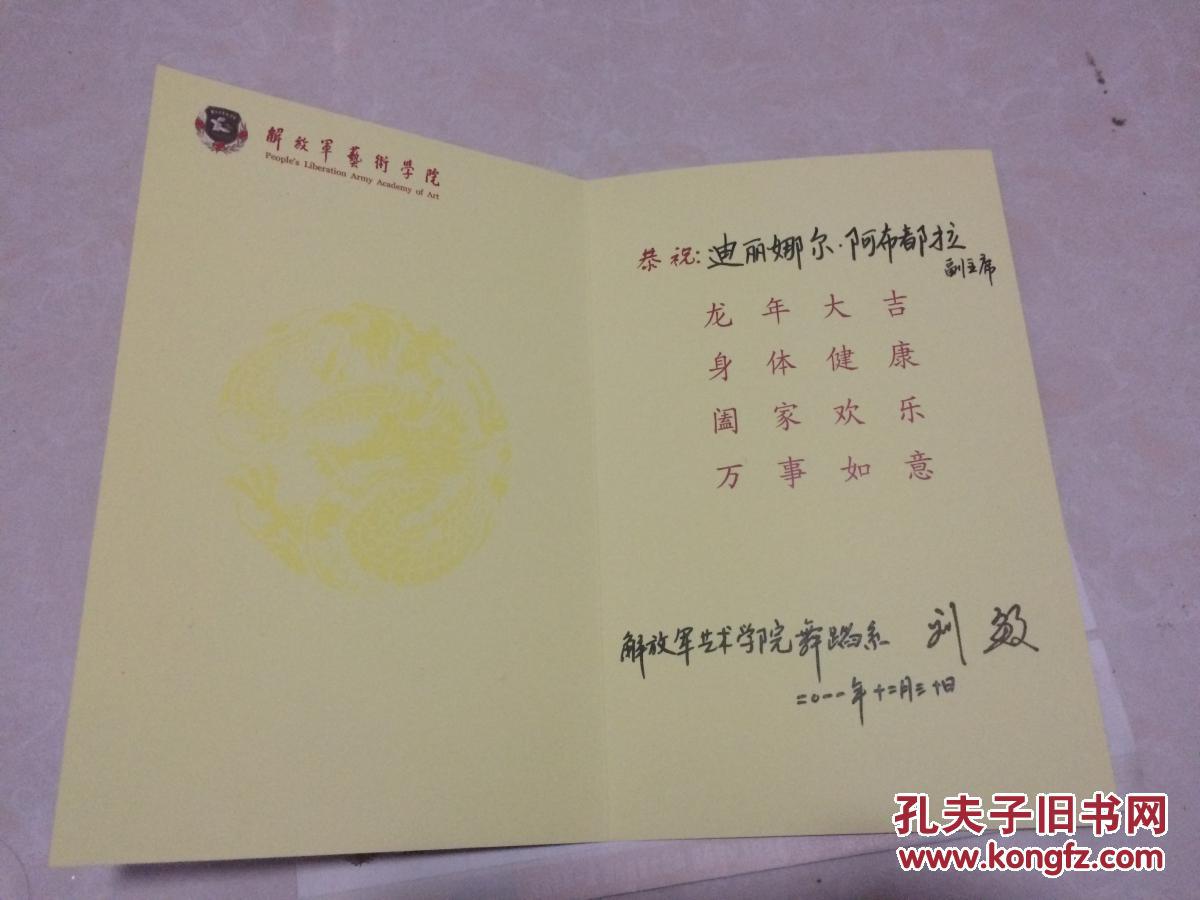 解放军藝術學院
People's Liberation Army Academy of Art
恭祝：迪丽娜尔·阿布都拉
副主席
龙年大吉
身体健康
阖家欢乐
万事如意
解放军艺术学院舞蹈系 刘敏
二〇一一年十二月三十日
孔夫子旧书网
www.kongfz.com